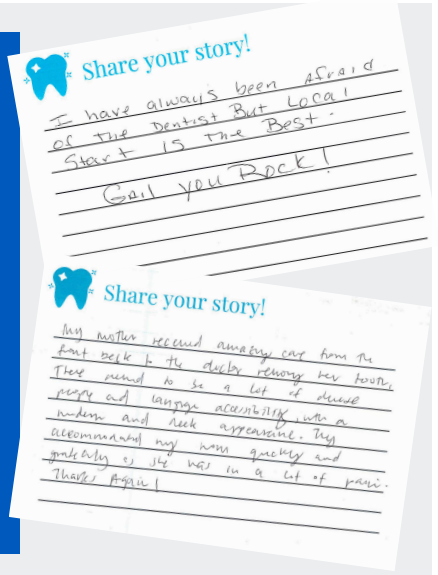 Share your story!
I have always been Afraid
of The Dentist But Local
Start Is The Best.
Gail you Rock!
Share your story!
My mother received amazing care from the
front desk to the doctor removing her tooth.
There to be a lot of diverse
people and language accessibility, with a
modern and sleek appearance. They
accommodated my mom quickly and
as she was in a lot of pain.
Thanks Again!